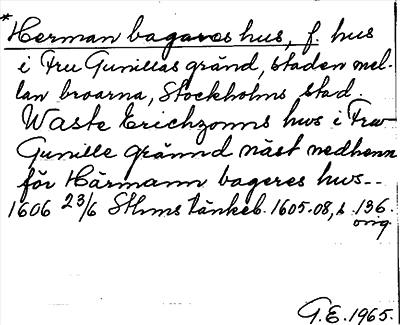 *Herman bagares hus, f. hus
i Fru Gunillas gränd, staden mel-
lan broarna, Stockholms stad.
Waste Erichzonns hws i Frw
Gunille grännd näst nedhenn
för Härmann bageres hws--
1606 23/6 Sthms tänkeb. 1605-08, s. 136.
orig.
G.E. 1965.